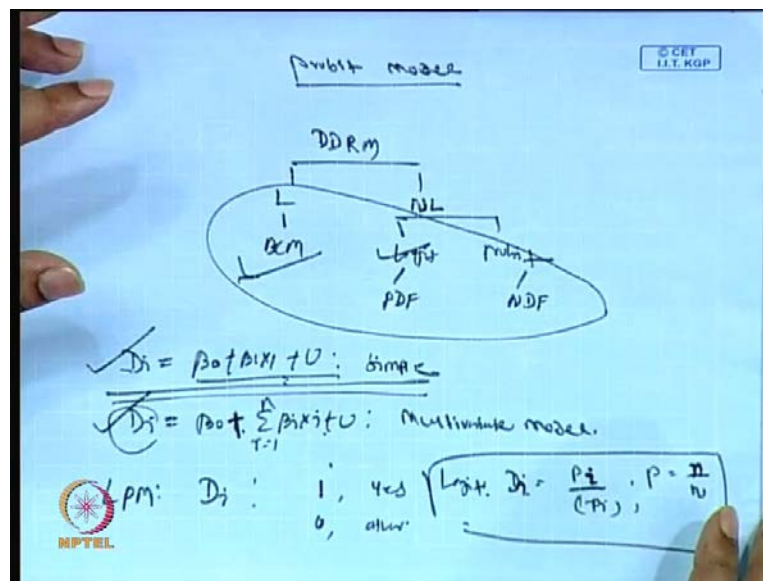 Probit model
© CET
I.I.T. KGP
DDRM
L NL
BCM Logit Probit
PDF NDF
Di = β0 + β1x1 + U : simple
Di = β0 + Σ βixi + U : Multivariate model.
n
i=1
LPM: Di : 1, yes
0, other
Logit: Di = Pi / (1-Pi), P = n/N
NPTEL